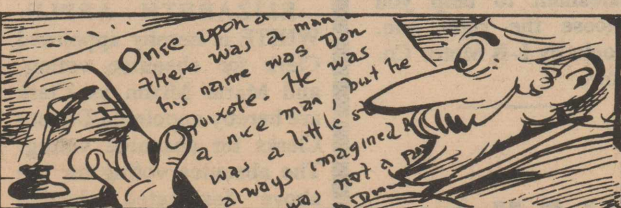 Once upon a
there was a man
his name was Don
Quixote. He was
a nice man, but he
was a little
always imagined
was not a